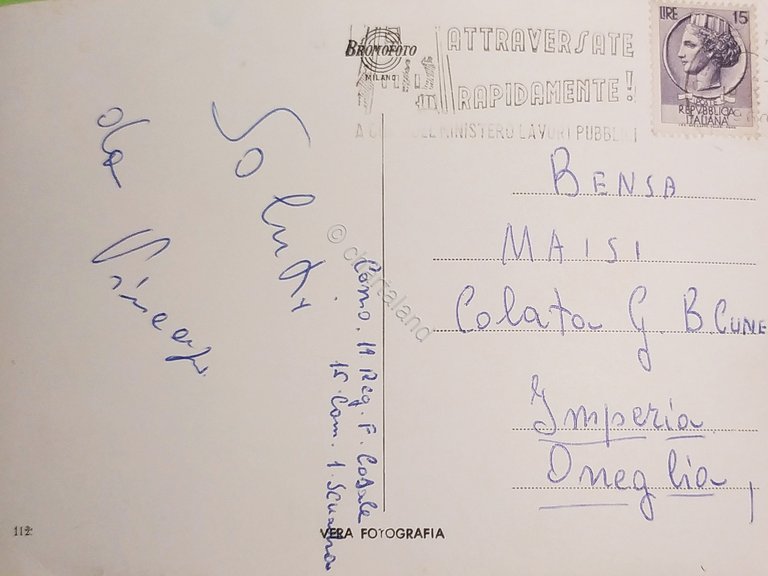 Saluti
da
Vincenzo
Como. 11 Reg. F. Casale
15 Com. 1 Scuadra
BROMOFOTO
MILANO
ATTRAVERSATE
RAPIDAMENTE!
A CURA DEL MINISTERO LAVORI PUBBLICI
LIRE 15
POSTE
REPVBBLICA
ITALIANA
BENSA
MAISI
Calata G. B. CUNE
Imperia
Oneglia,
© cartaland
112
VERA FOTOGRAFIA